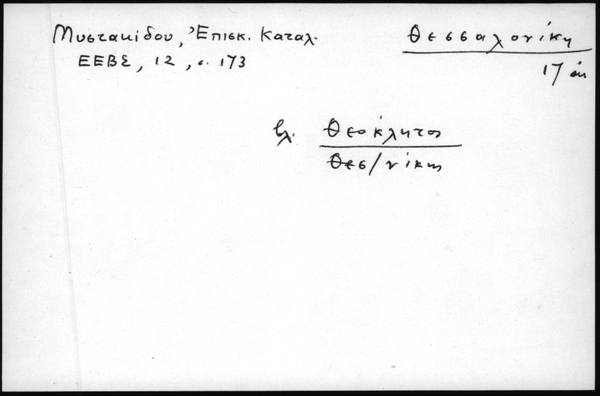 Μυστακίδου, Ἐπισκ. Καταλ.
ΕΕΒΣ, 12, σ. 173
Θεσσαλονίκη
17 αι
βλ. Θεόκλητος
Θεσ/νίκης